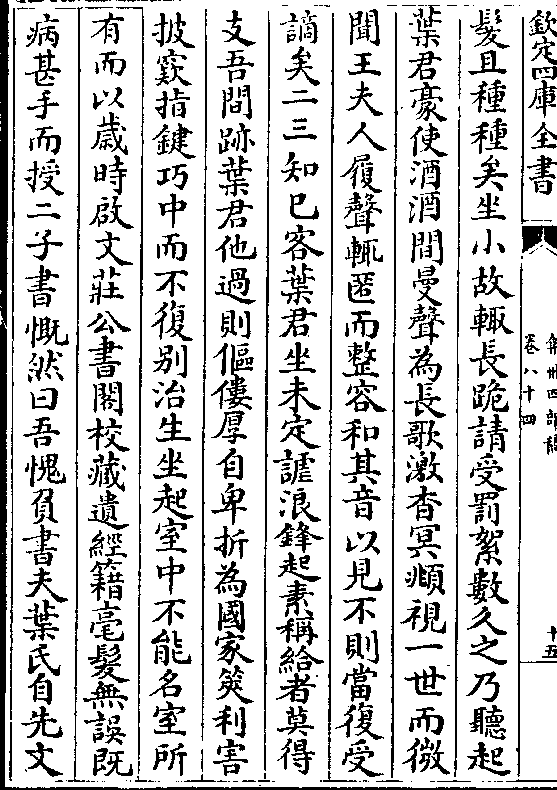 欽定四庫全書
弇州四部稿
卷八十四
十五
髮且種種矣坐小故輒長跪請受罰絮數久之乃聽起
葉君豪使酒酒間曼聲為長歌激杳冥頫視一世而微
聞王夫人履聲輒匿而整容和其音以見不則當復受
謫矣二三知已客葉君坐未定謔浪鋒起素稱給者莫得
支吾間跡葉君他過則傴僂厚自卑折為國家筴利害
披窾指鍵巧中而不復别治生坐起室中不能名室所
有而以歲時啟文莊公書閣校藏遺經籍毫髮無誤既
病甚手而授二子書慨然曰吾愧負書夫葉氏自先文